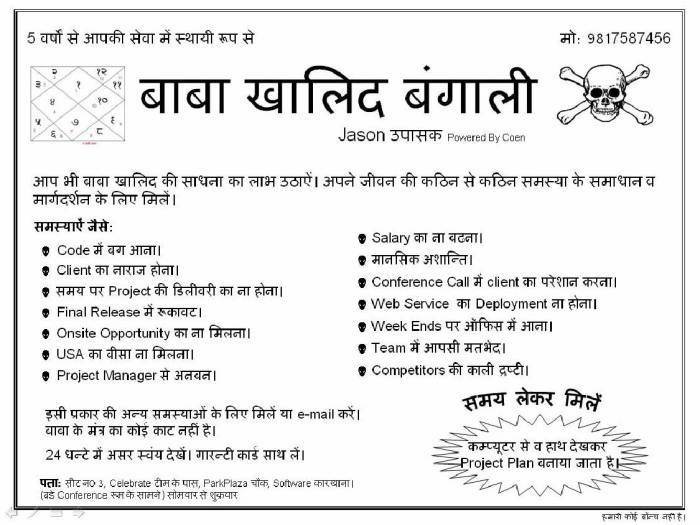 5 वर्षो से आपकी सेवा में स्थायी रूप से
मो: 9817587456
बाबा खालिद बंगाली
Jason उपासक Powered By Coen
आप भी बाबा खालिद की साधना का लाभ उठाऐं। अपने जीवन की कठिन से कठिन समस्या के समाधान व
मार्गदर्शन के लिए मिलें।
समस्याऐं जैसे:
Code में बग आना।
Client का नाराज होना।
समय पर Project की डिलीवरी का ना होना।
Final Release में रूकावट।
Onsite Opportunity का ना मिलना।
USA का वीसा ना मिलना।
Project Manager से अनबन।
Salary का ना बढना।
मानसिक अशान्ति।
Conference Call में client का परेशान करना।
Web Service का Deployment ना होना।
Week Ends पर ऑफिस में आना।
Team में आपसी मतभेद।
Competitors की काली द्रष्टी।
इसी प्रकार की अन्य समस्याओं के लिए मिलें या e-mail करें।
बाबा के मंत्र का कोई काट नहीं है।
24 घन्टे में असर स्वंय देखें। गारन्टी कार्ड साथ लें।
समय लेकर मिलें
कम्प्यूटर से व हाथ देखकर
Project Plan बनाया जाता है।
पता: सीट न0 3, Celebrate टीम के पास, ParkPlaza चौंक, Software कारखाना।
(बडे Conference रूम के सामने) सोमवार से शुक्रवार
हमारी कोई ब्रान्च नही है।